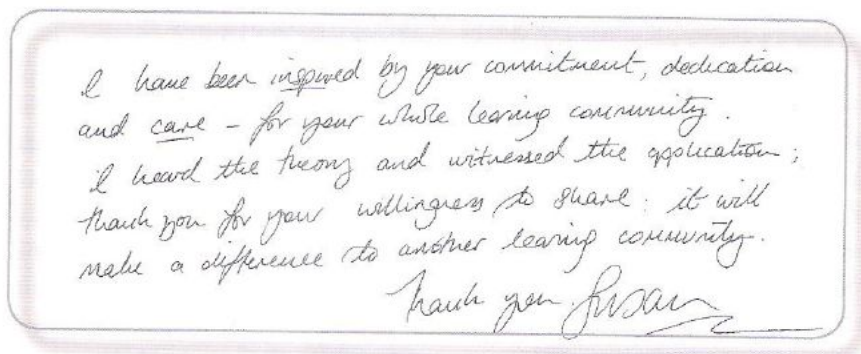 I have been inspired by your commitment, dedication
and care – for your whole learning community.
I heard the theory and witnessed the application;
thank you for your willingness to share: it will
make a difference to another learning community.
Thank you. Susan